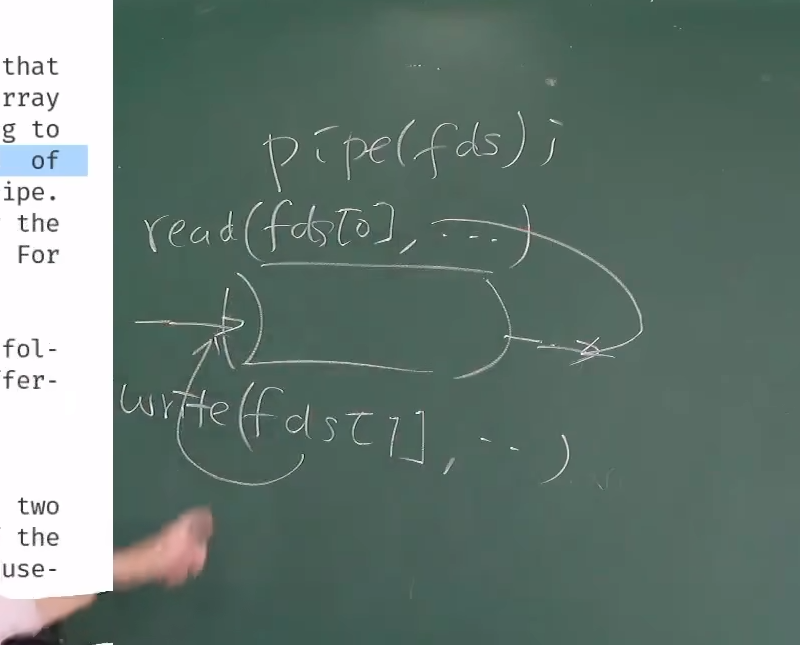 that
rray
g to
of
ipe.
the
For
fol-
fer-
two
the
use-
pipe(fds);
read(fds[0], ...)
write(fds[1], ..)